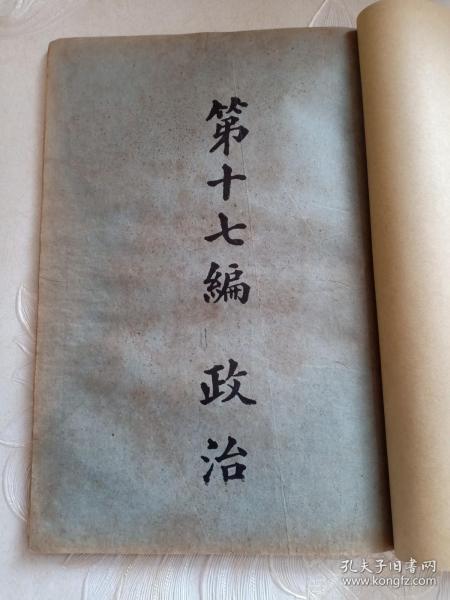 第十七編 政治
孔夫子旧书网
www.kongfz.com